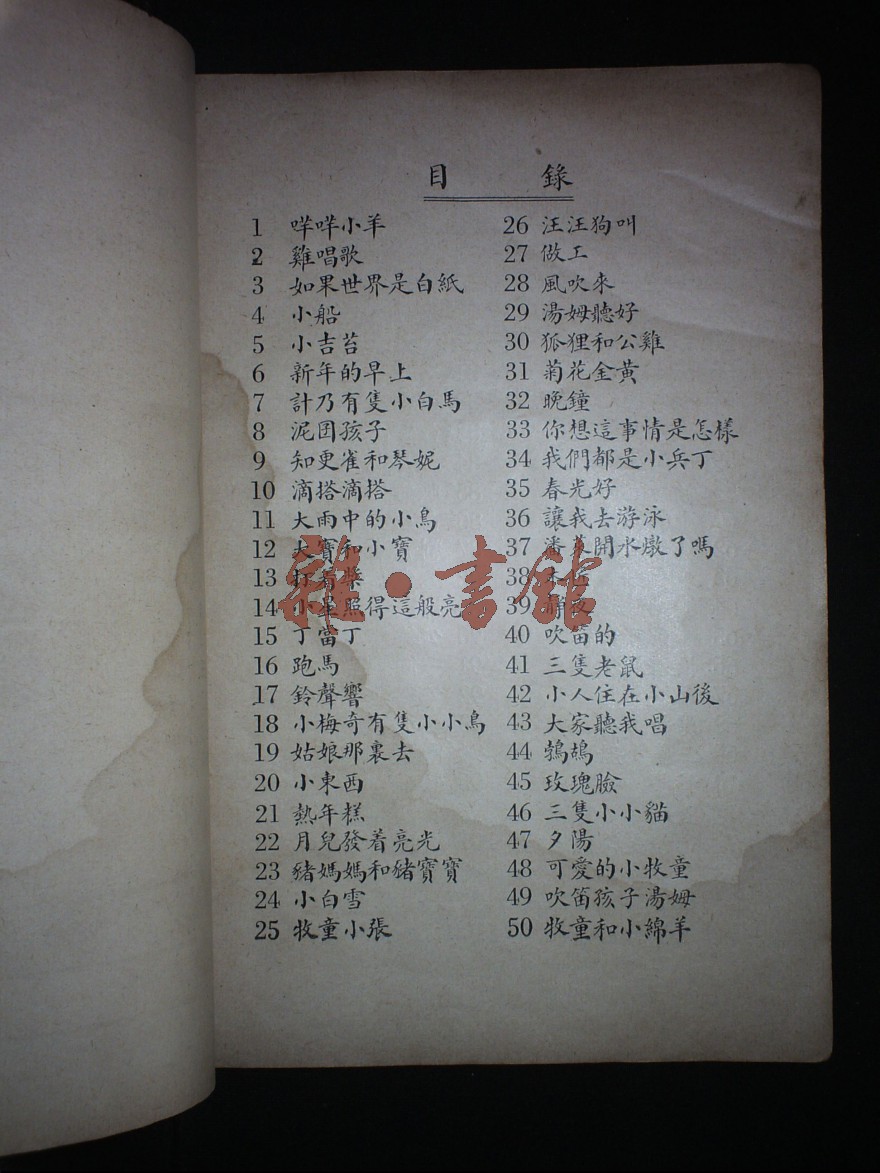 目 錄
1 咩咩小羊
2 雞唱歌
3 如果世界是白紙
4 小船
5 小吉苔
6 新年的早上
7 計乃有隻小白馬
8 泥囝孩子
9 知更雀和琴妮
10 滴搭滴搭
11 大雨中的小鳥
12 大寶和小寶
13
14 小星照得這般亮
15 丁當丁
16 跑馬
17 鈴聲響
18 小梅奇有隻小小鳥
19 姑娘那裏去
20 小東西
21 熱年糕
22 月兒發着亮光
23 豬媽媽和豬寶寶
24 小白雪
25 牧童小張
26 汪汪狗叫
27 做工
28 風吹來
29 湯姆聽好
30 狐狸和公雞
31 菊花金黃
32 晚鐘
33 你想這事情是怎樣
34 我們都是小兵丁
35 春光好
36 讓我去游泳
37 潘英開水燉了嗎
38
39 靜夜
40 吹笛的
41 三隻老鼠
42 小人住在小山後
43 大家聽我唱
44 鵓鴣
45 玫瑰臉
46 三隻小小貓
47 夕陽
48 可愛的小牧童
49 吹笛孩子湯姆
50 牧童和小綿羊
雜·書館